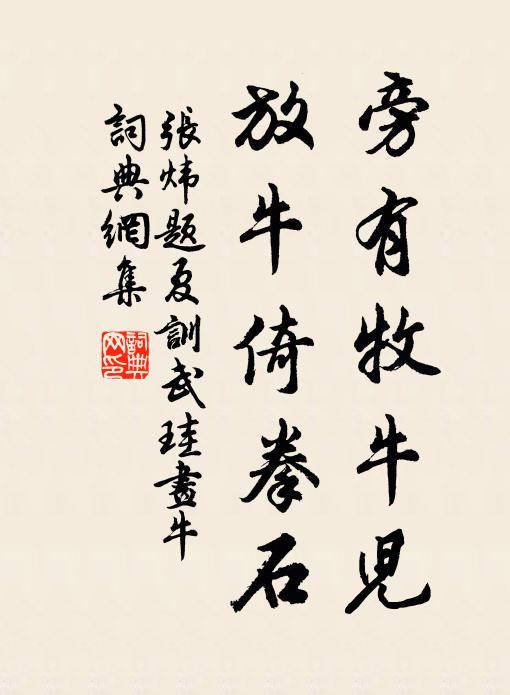 旁有牧牛兒
放牛倚拳石
張煒題夏訓武珪畫牛
詞典網集
詞典
网印